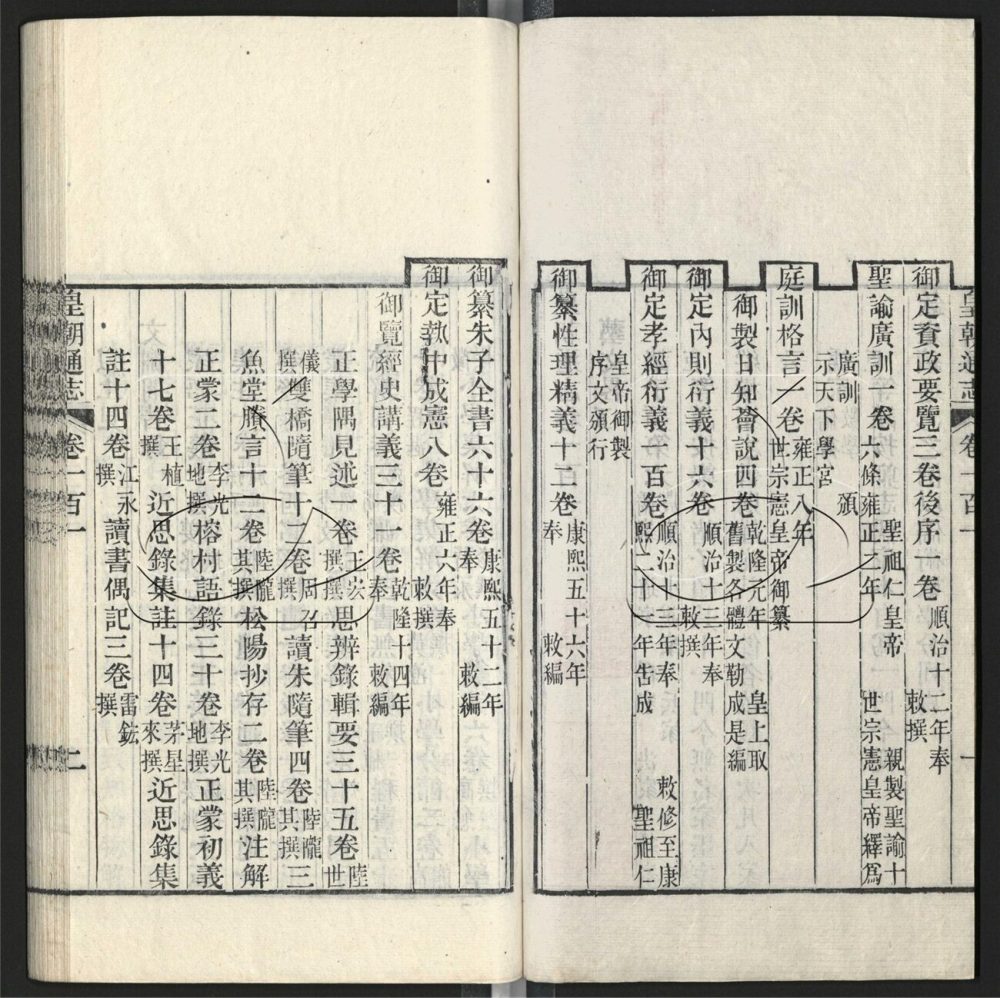 皇朝通志 卷一百一 一
御定資政要覽三卷後序一卷 順治十二年奉 敕撰
聖諭廣訓一卷 聖祖仁皇帝 親製聖諭十六條雍正二年 世宗憲皇帝繹爲
廣訓 頒示天下學宮
庭訓格言一卷 雍正八年 世宗憲皇帝御纂
御製日知薈說四卷 乾隆元年 皇上取舊製各體文勒成是編
御定內則衍義十六卷 順治十三年奉 敕撰
御定孝經衍義一百卷 順治十三年奉 敕修至康熙二十一年告成 聖祖仁
皇帝御製序文頒行
御纂性理精義十二卷 康熙五十六年奉 敕編
御纂朱子全書六十六卷 康熙五十二年奉 敕編
御定執中成憲八卷 雍正六年奉 敕撰
御覽經史講義三十一卷 乾隆十四年奉 敕編
正學隅見述一卷 王 撰 思辨錄輯要三十五卷 陸世
儀撰 雙橋隨筆十二卷 周召撰 讀朱隨筆四卷 陸隴其撰 三
魚堂賸言十二卷 陸隴其撰 松陽抄存二卷 陸隴其撰 注解
正蒙二卷 李光地撰 榕村語錄三十卷 李光地撰 正蒙初義
十七卷 王植撰 近思錄集註十四卷 茅星來撰 近思錄集
註十四卷 江永撰 讀書偶記三卷 雷鋐撰
皇朝通志 卷一百一 二